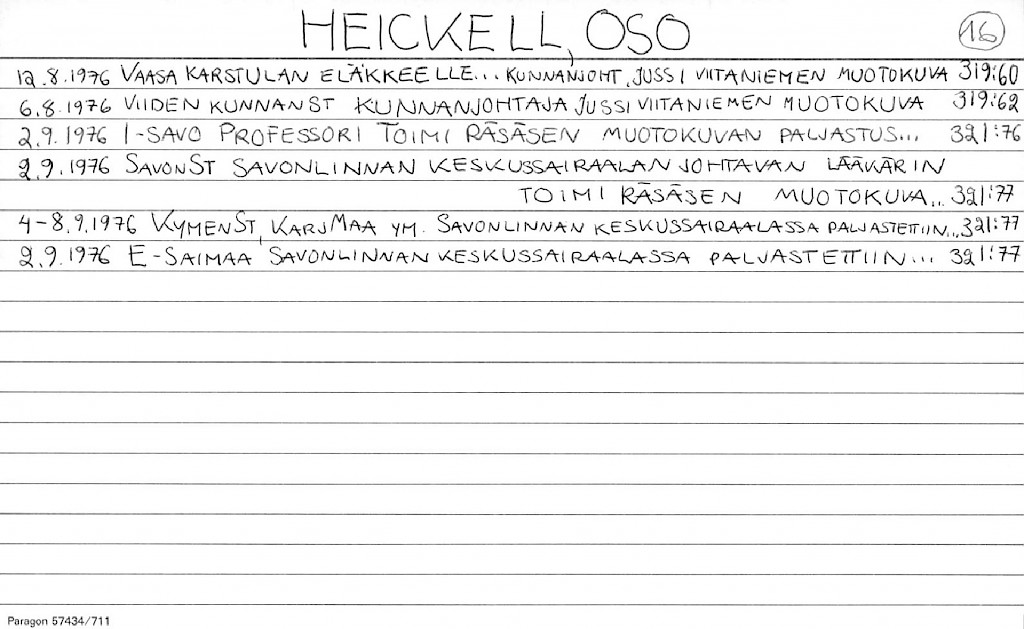 HEICKELL, OSO 16
12.8.1976 VAASA KARSTULAN ELÄKKEELLE... KUNNANJOHT. JUSSI VIITANIEMEN MUOTOKUVA 319:60
6.8.1976 VIIDEN KUNNANST KUNNANJOHTAJA JUSSI VIITANIEMEN MUOTOKUVA 319:62
2.9.1976 I-SAVO PROFESSORI TOIMI RÄSÄSEN MUOTOKUVAN PALJASTUS... 321:76
2.9.1976 SAVONST SAVONLINNAN KESKUSSAIRAALAN JOHTAVAN LÄÄKÄRIN
TOIMI RÄSÄSEN MUOTOKUVA... 321:77
4-8.9.1976 KYMENST, KARJMAA YM. SAVONLINNAN KESKUSSAIRAALASSA PALJASTETTIIN... 321:77
2.9.1976 E-SAIMAA SAVONLINNAN KESKUSSAIRAALASSA PALJASTETTIIN... 321:77
Paragon 57434/711